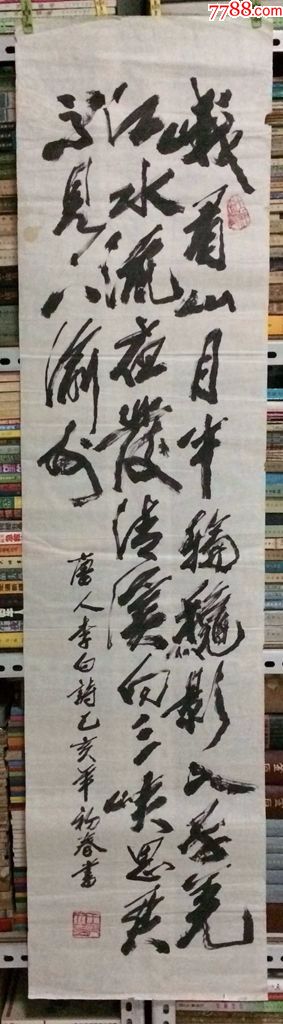 7788.com
峨眉山月半輪龝影入平羌
江水流夜發清溪向三峡思君
不見下渝州
唐人李白詩己亥年初春書